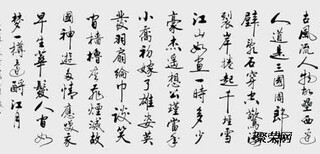 古風流人物故壘西邊
人道是三國周郎
壁亂石穿空驚
裂岸捲起千堆雪
江山如畫一時多少
豪杰遥想公瑾當年
小喬初嫁了雄姿英
發羽扇綸巾談笑
間檣櫓灰飛煙滅故
國神遊多情應笑我
早生華髮人間如
夢一樽還酹江月